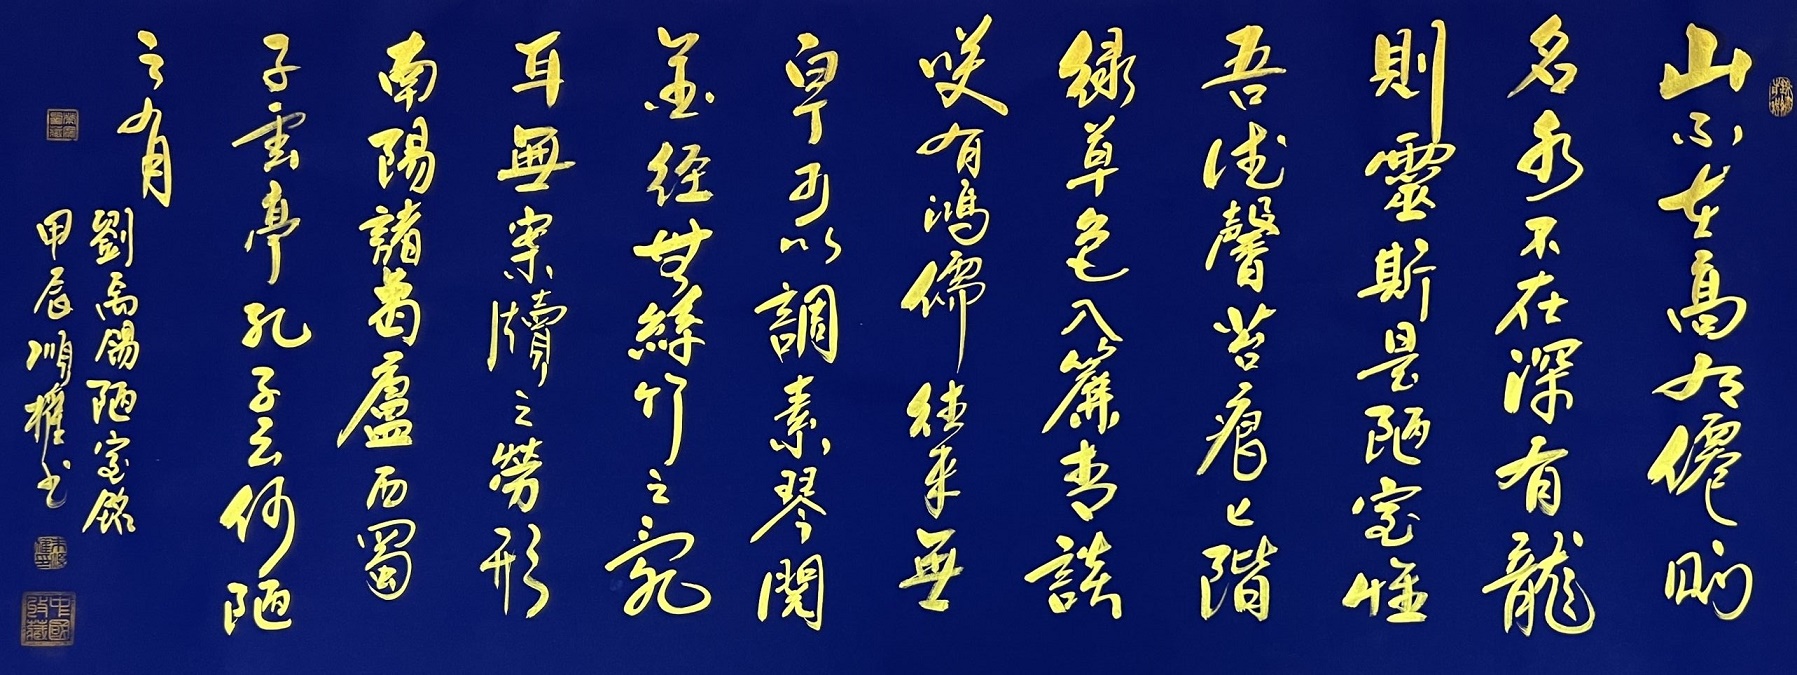 山不在高有僊則
名水不在深有龍
則靈斯是陋室惟
吾德馨苔痕上階
綠草色入簾青談
咲有鴻儒往來無
白丁可以調素琴閱
金經無絲竹之亂
耳無案牘之勞形
南陽諸葛廬西蜀
子雲亭孔子云何陋
之有
劉禹錫陋室銘
甲辰順權书